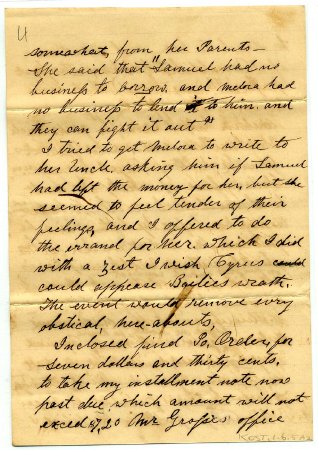 4
somewhat, from her Parents—
She said that "Samuel had no
business to borrow, and melora had
no business to lend it to him. and
they can fight it out"
I tried to get melora to write to
her Uncle, asking him if Samuel
had left the money for her, but she
seemed to feel tender of their
feelings, and I offered to do
the errand for her, which I did
with a zest I wish Cyrus could
could appease Bailies wrath.
The event would remove evry
obstical, here-abouts,
Inclosed find Po. Order, for
seven dollars and thirty cents.
to take my installment note now
past due, which amount will not
exceed 7,20 Mr Grosses office